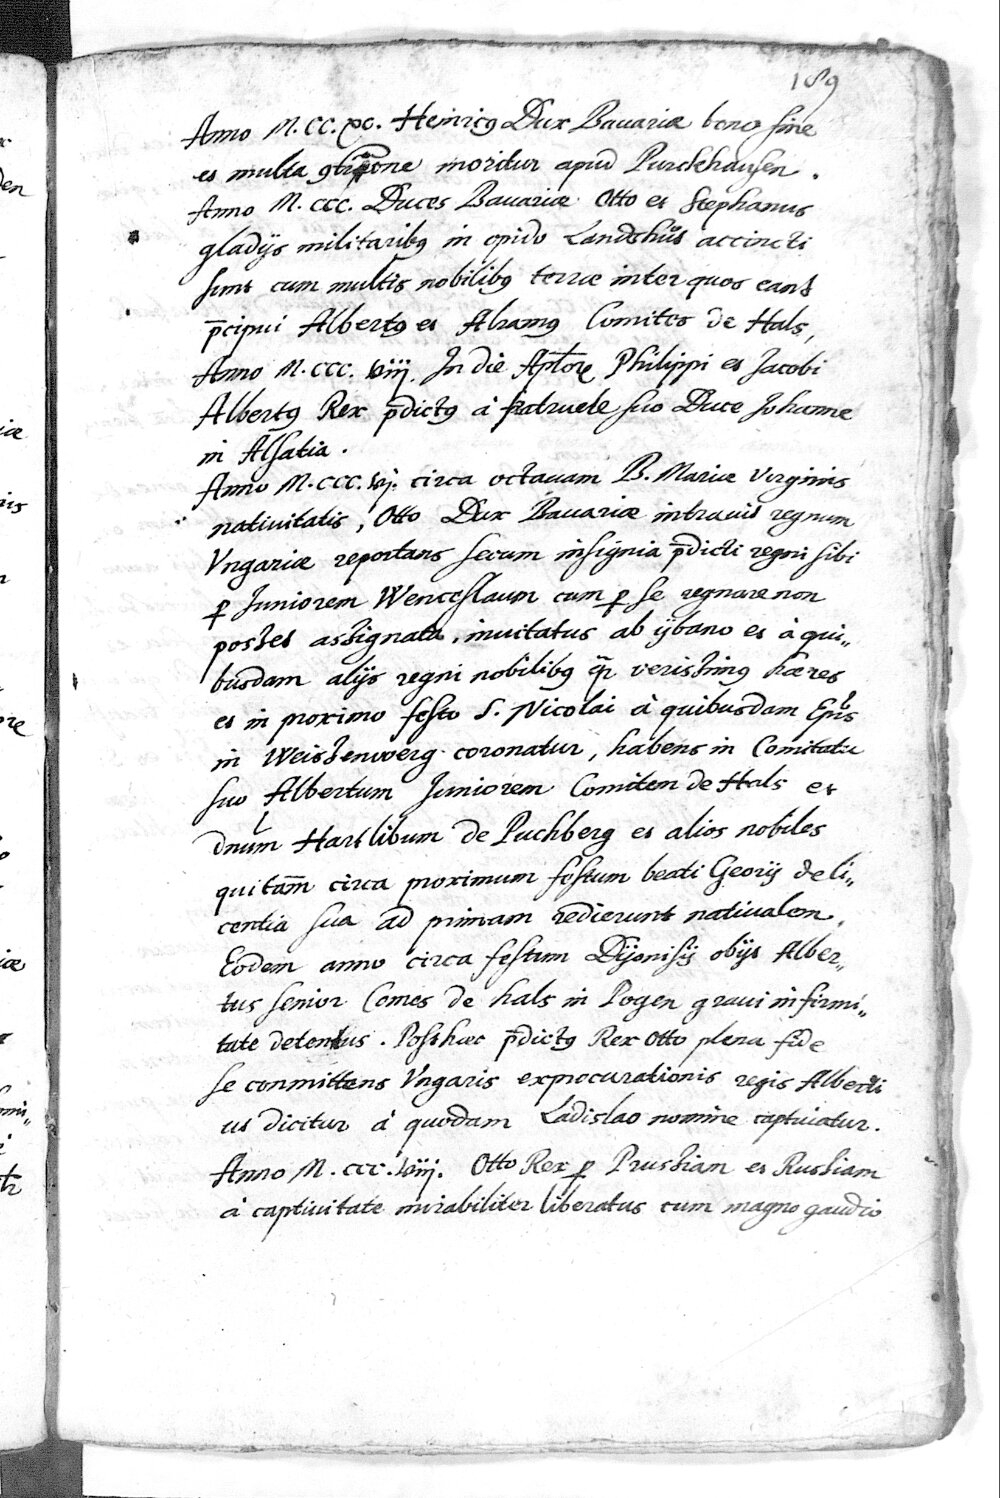 189
Anno M.CC.XC. Heinricꝰ Dux Bauariæ bono fine
et multa ꝯtritione moritur apud Purckhausen.
Anno M.CCC. Duces Bauariæ Otto et Stephanus
gladijs militaribꝰ in opido Landshut accincti
sunt cum multis nobilibꝰ terræ inter quos erant
p̄cipui Albertꝰ et Alramꝰ Comites de Hals,
Anno M.CCC.viij. In die Aptorꝝ Philippi et Jacobi
Albertꝰ Rex p̄dictꝰ à patruele suo Duce Johanne
in Alsatia.
Anno M.CCC.vj. circa octauam B. Mariæ Virginis
natiuitatis, Otto Dux Bauariæ intrauit regnum
Vngariæ reportans secum insignia p̄dicti regni sibi
ꝑ Juniorem Wenceslaum cum ꝑ se regnare non
posset assignata, inuitatus ab ybano et à qui„
busdam alijs regni nobilibꝰ verissimꝰ hæres
et in proximo festo S. Nicolai à quibusdam Epūs
in Weissenwerg coronatur, habens in Comitatu
suo Albertum Juniorem Comitem de Hals et
dnum Hartlibum de Puchberg et alios nobiles
qui tam̄ circa proximum festum beati Georij de li„
centia sua ad primam redierunt natiualem.
Eodem anno circa festum Dijonisij obijt Alber„
tus senior Comes de hals in Pogen graui infirmi„
tate detentus. Post hæc p̄dictꝰ Rex Otto plena fide
se conmittens Vngaris ex procurationis regis Alberti
ut dicitur à quodam Ladislao nomine captiuatur.
Anno M.CCC.viij. Otto Rex ꝑ Prussiam et Russiam
à captiuitate mirabiliter liberatus cum magno gaudio